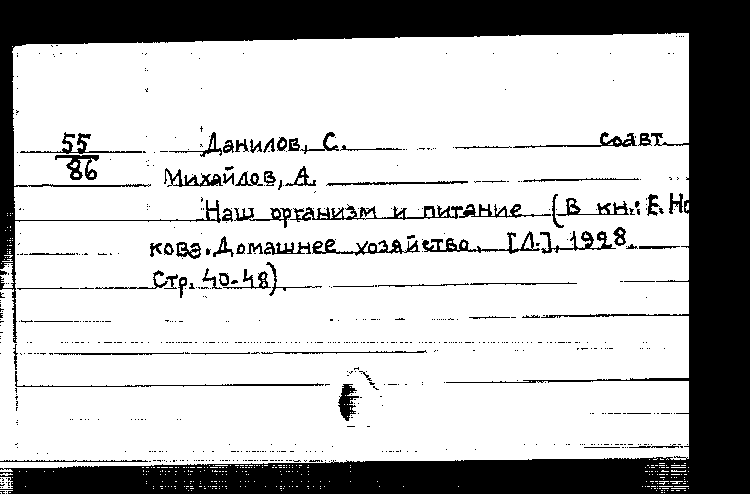 55
86
Данилов, С. соавт.
Михайлов, А.
Наш организм и питание (В кн.: Е. Но
кова. Домашнее хозяйство. [Л.], 1928.
Стр. 40-48).